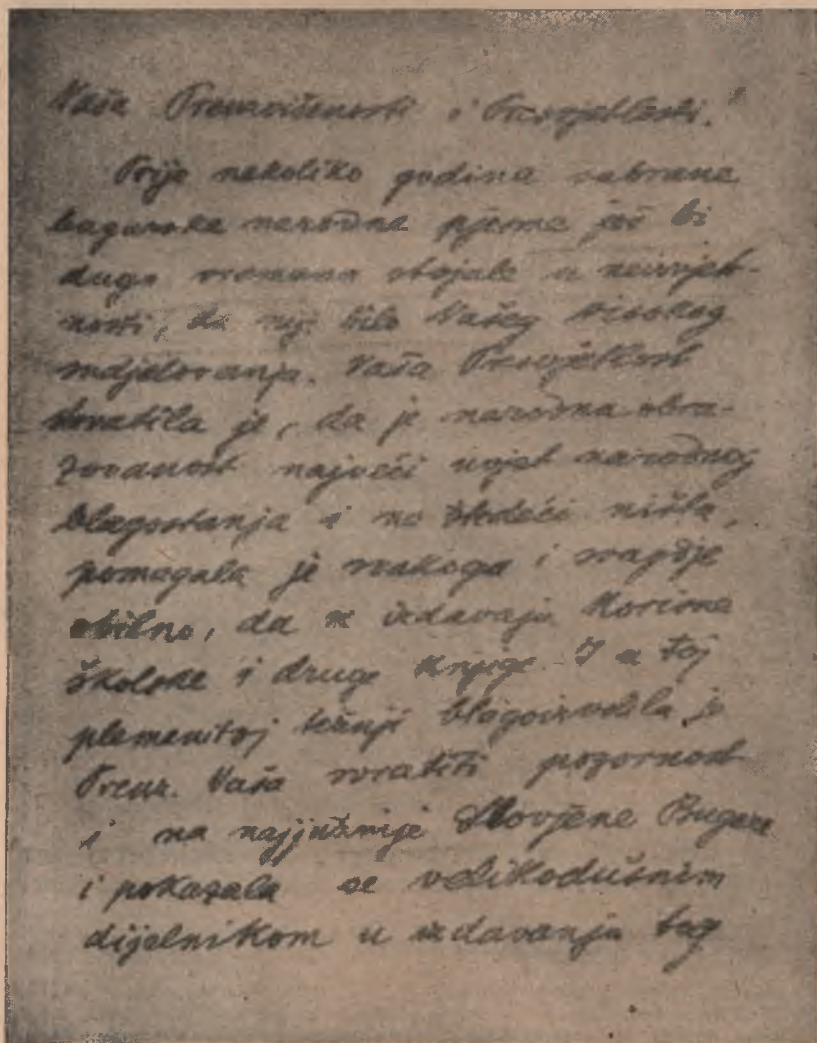 Vaša Preuzvišenosti i Presvjetlosti.
Prije nekoliko godina sabrane
bugarske narodne pjesme još bi
dugo vremena stojale u neizvjest-
nosti, da nij bilo Vašeg visokog
sudjelovanja. Vaša Presvjetlost
shvatila je, da je narodna obra-
zovanost najveći uvjet narodnog
blagostanja i ne štedeći ništa,
pomagala je svakoga i svagdje
obilno, da se izdavaju korisne
školske i druge knjige. I u toj
plemenitoj težnji blagoizvolila je
Preuz. Vaša svratiti pozornost
i na najjužnije Slovjene Bugare
i pokazala se velikodušnim
dijelnikom u izdavanju tog